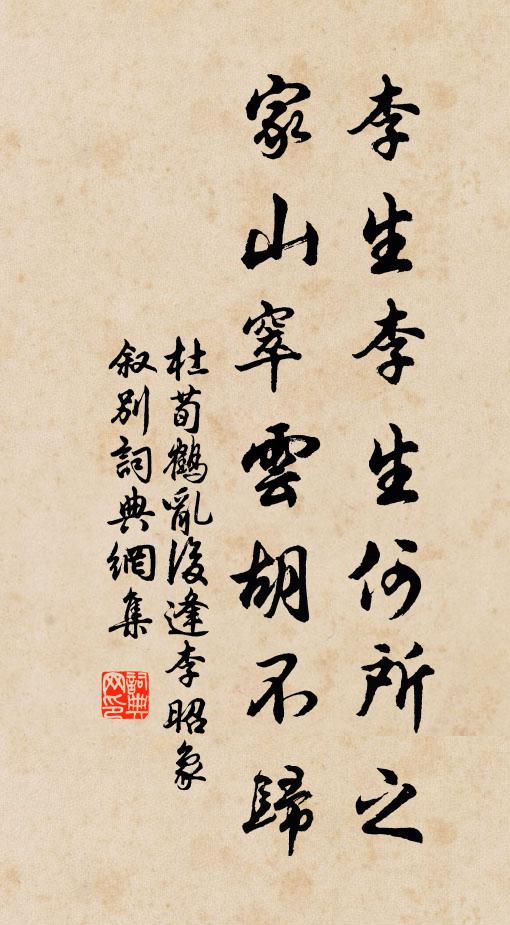 李生李生何所之
家山窣雲胡不歸
杜荀鶴亂後逢李昭象
叙別詞典網集
詞典
网印